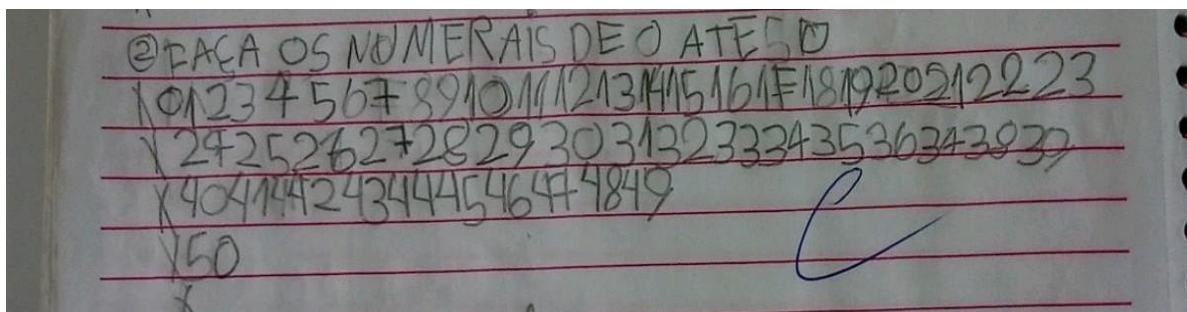 ② FAÇA OS NUMERAIS DE 0 ATÉ 50
X 01234567891011121314151617181920212223
X 24252627282930313233343536373839
X 404144243444546474849
X 50
X